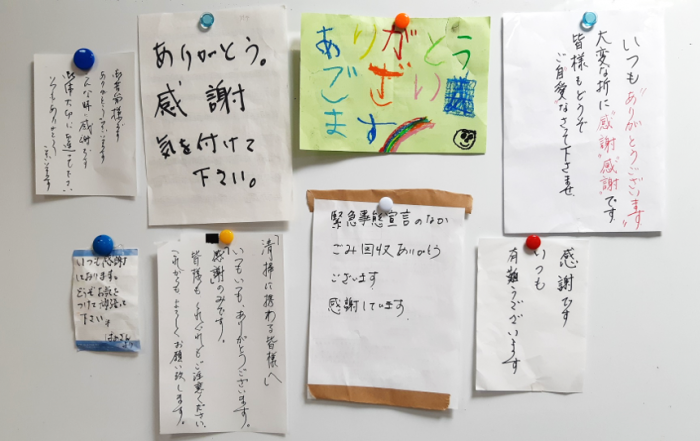 ありがとうございます
ありがとう。
感謝
気を付けて
下さい。
ありがとう
ございます
いつも"ありがとうございます"
大変な折に"感謝""感謝"です
皆様もどうぞ
ご自愛なさって下さいませ
いつも感謝
しております。
どうぞお気を
つけて
下さい。
「清掃に携わる皆様へ」
いつもいつも、ありがとうございます。
感謝のみです。
皆様もくれぐれもご注意ください。
これからもよろしくお願い致します。
緊急事態宣言のなか
ごみ回収ありがとう
ございます
感謝しています.
感謝です
いつも
有難うございます